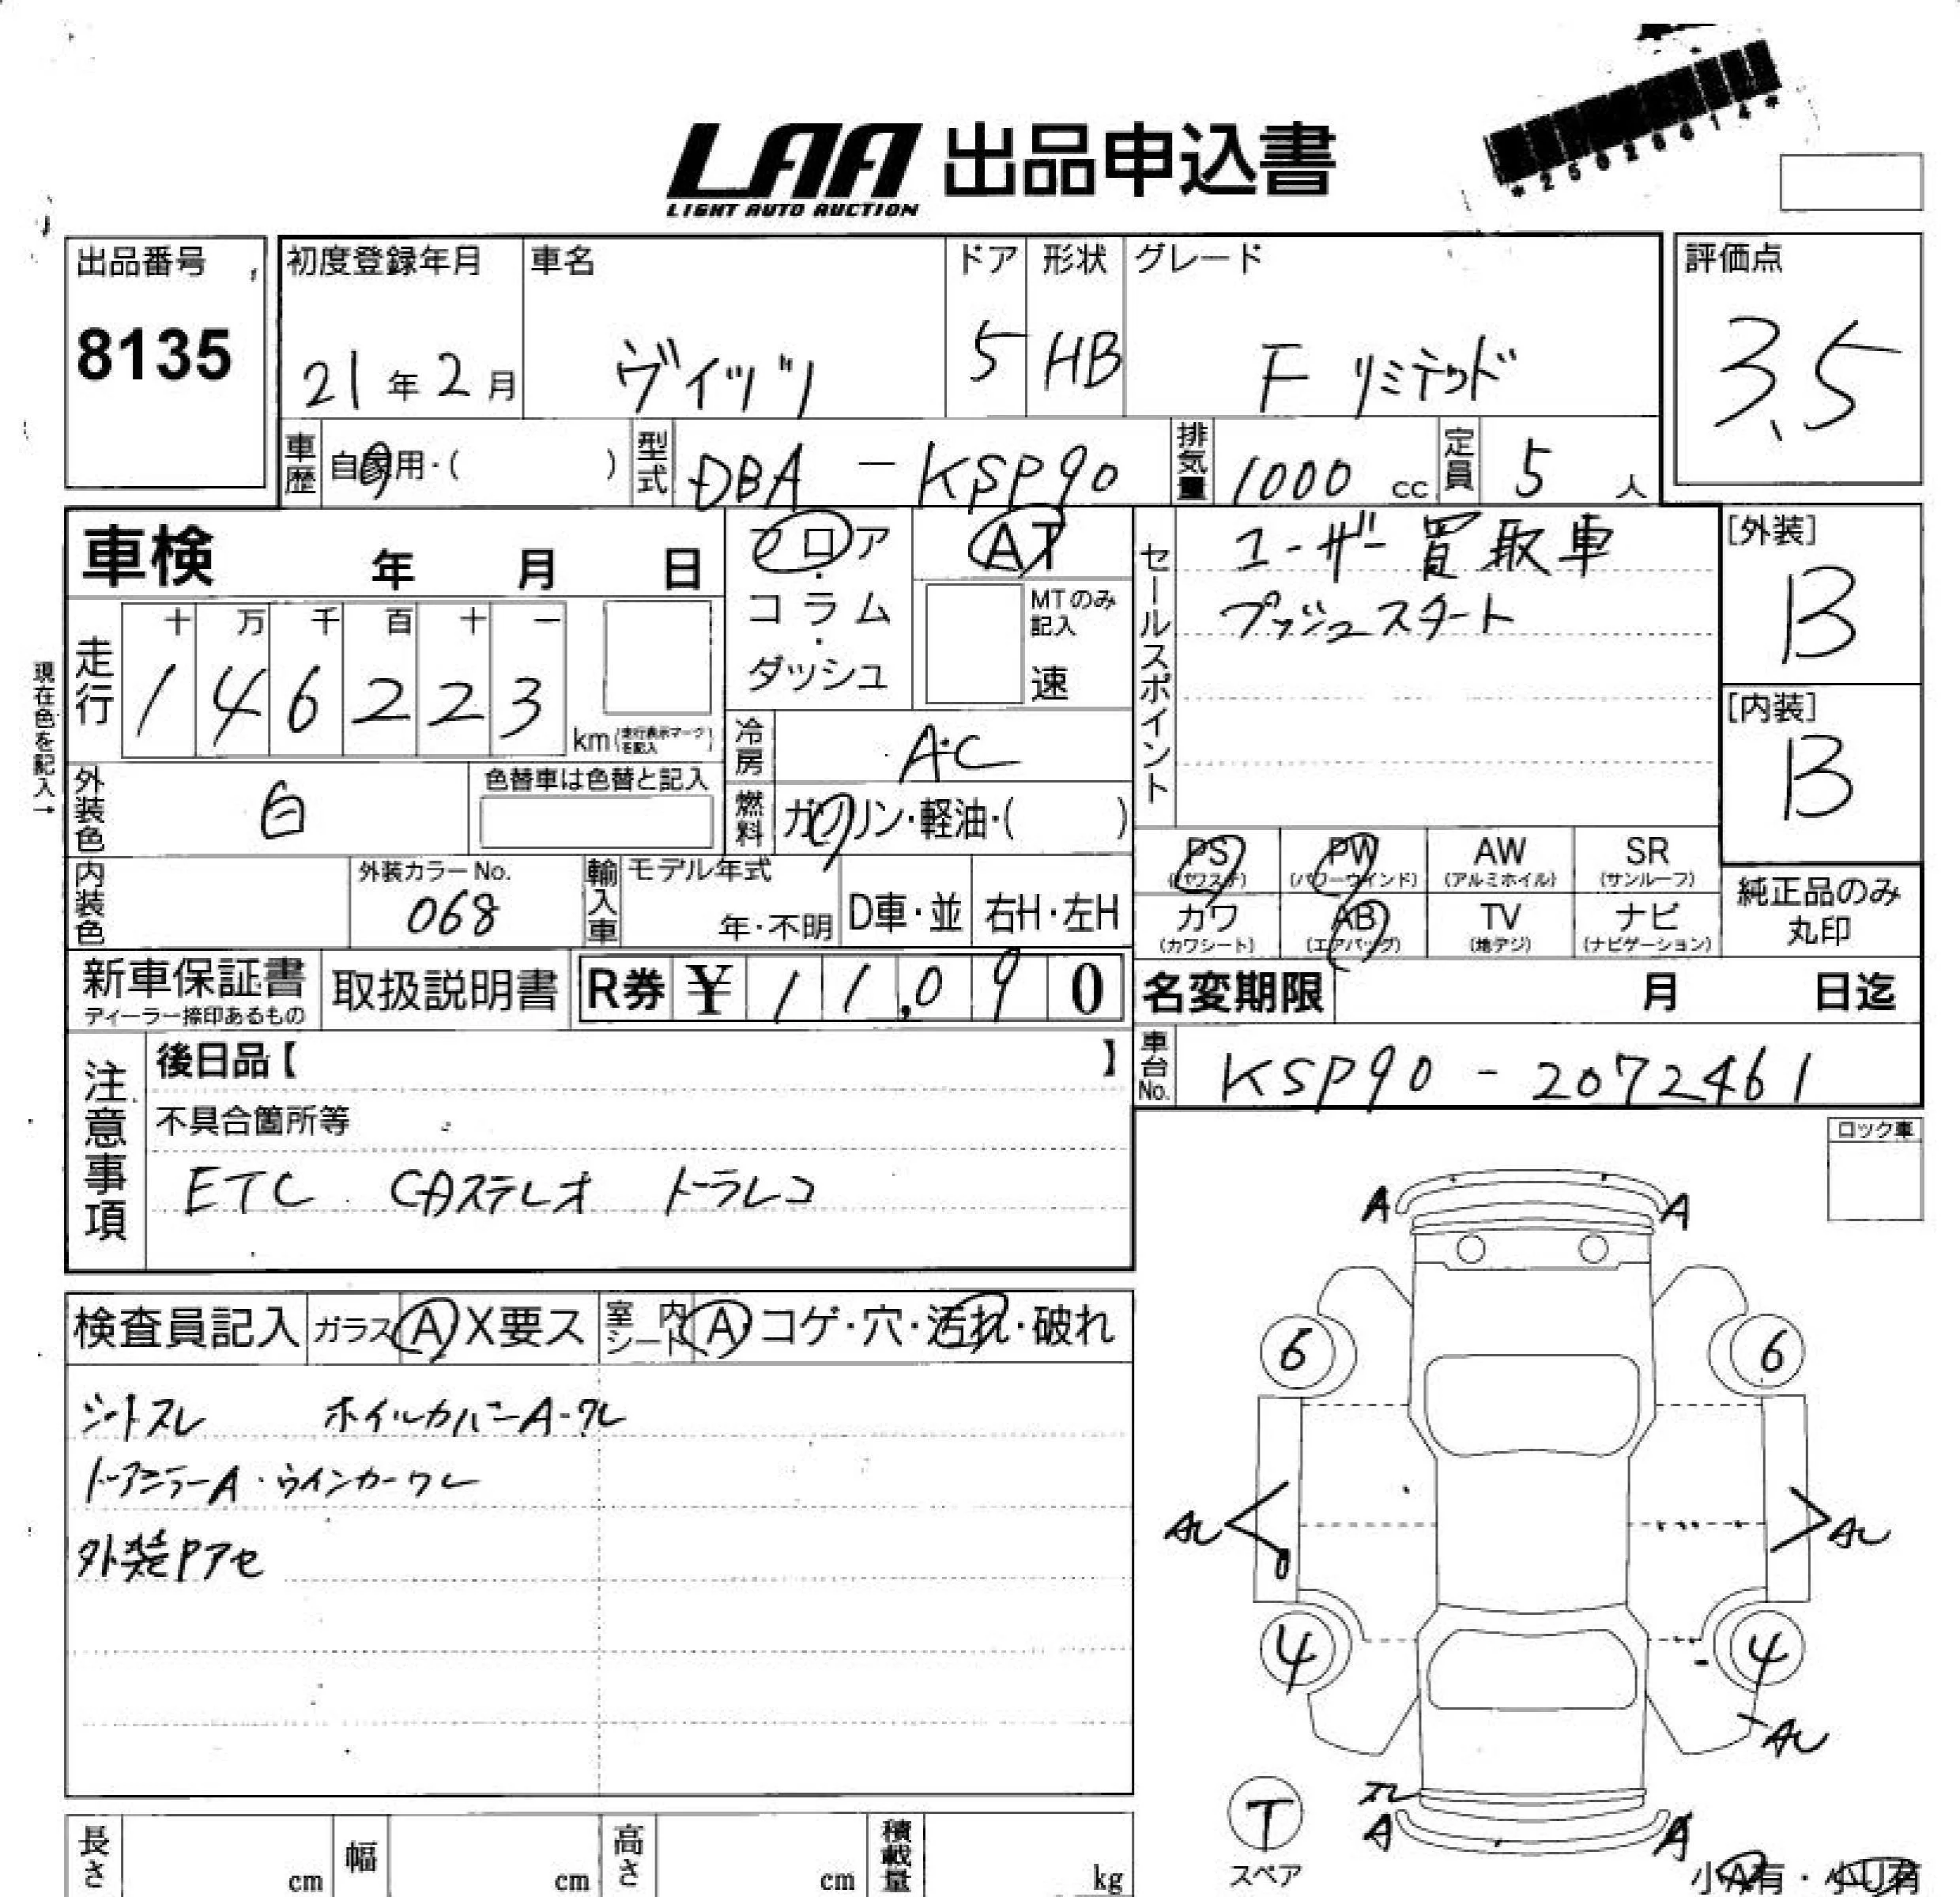 LAA 出品申込書
LIGHT AUTO AUCTION
出品番号
8135
初度登録年月
21年2月
車名
ヴィッツ
ドア
5
形状
HB
グレード
F リミテッド
評価点
3.5
車歴 自家用・( )
型式 DBA - KSP90
排気量 1000 cc
定員 5 人
車検 年 月 日
フロア・コラム・ダッシュ
AT
MTのみ記入
速
セールスポイント
ユーザー買取車
プッシュスタート
[外装]
B
[内装]
B
現在色を記入→
走行
十 万 千 百 十 一
1 4 6 2 2 3
km (走行表示マークを記入)
冷房 AC
外装色 白
色替車は色替と記入
燃料 ガソリン・軽油・( )
内装色
外装カラーNo.
068
輸入車
モデル年式
年・不明
D車・並
右H・左H
PS (パワステ)
PW (パワーウインド)
AW (アルミホイル)
SR (サンルーフ)
カワ (カワシート)
AB (エアバッグ)
TV (地デジ)
ナビ (ナビゲーション)
純正品のみ丸印
新車保証書
ディーラー捺印あるもの
取扱説明書
R券 ¥ 11,090
名変期限 月 日迄
車台No. KSP90 - 2072461
注意事項
後日品【 】
不具合箇所等
ETC CDステレオ ドラレコ
ロック車
検査員記入
ガラス A X要ス
室内シート A コゲ・穴・汚れ・破れ
シートスレ ホイルカバーA・ワレ
ドアミラーA・ウインカーワレ
外装Pアセ
A A
6 6
AU AU
4 4
AU
A A
T
スペア
小A有・小U有
長さ cm
幅 cm
高さ cm
積載量 kg